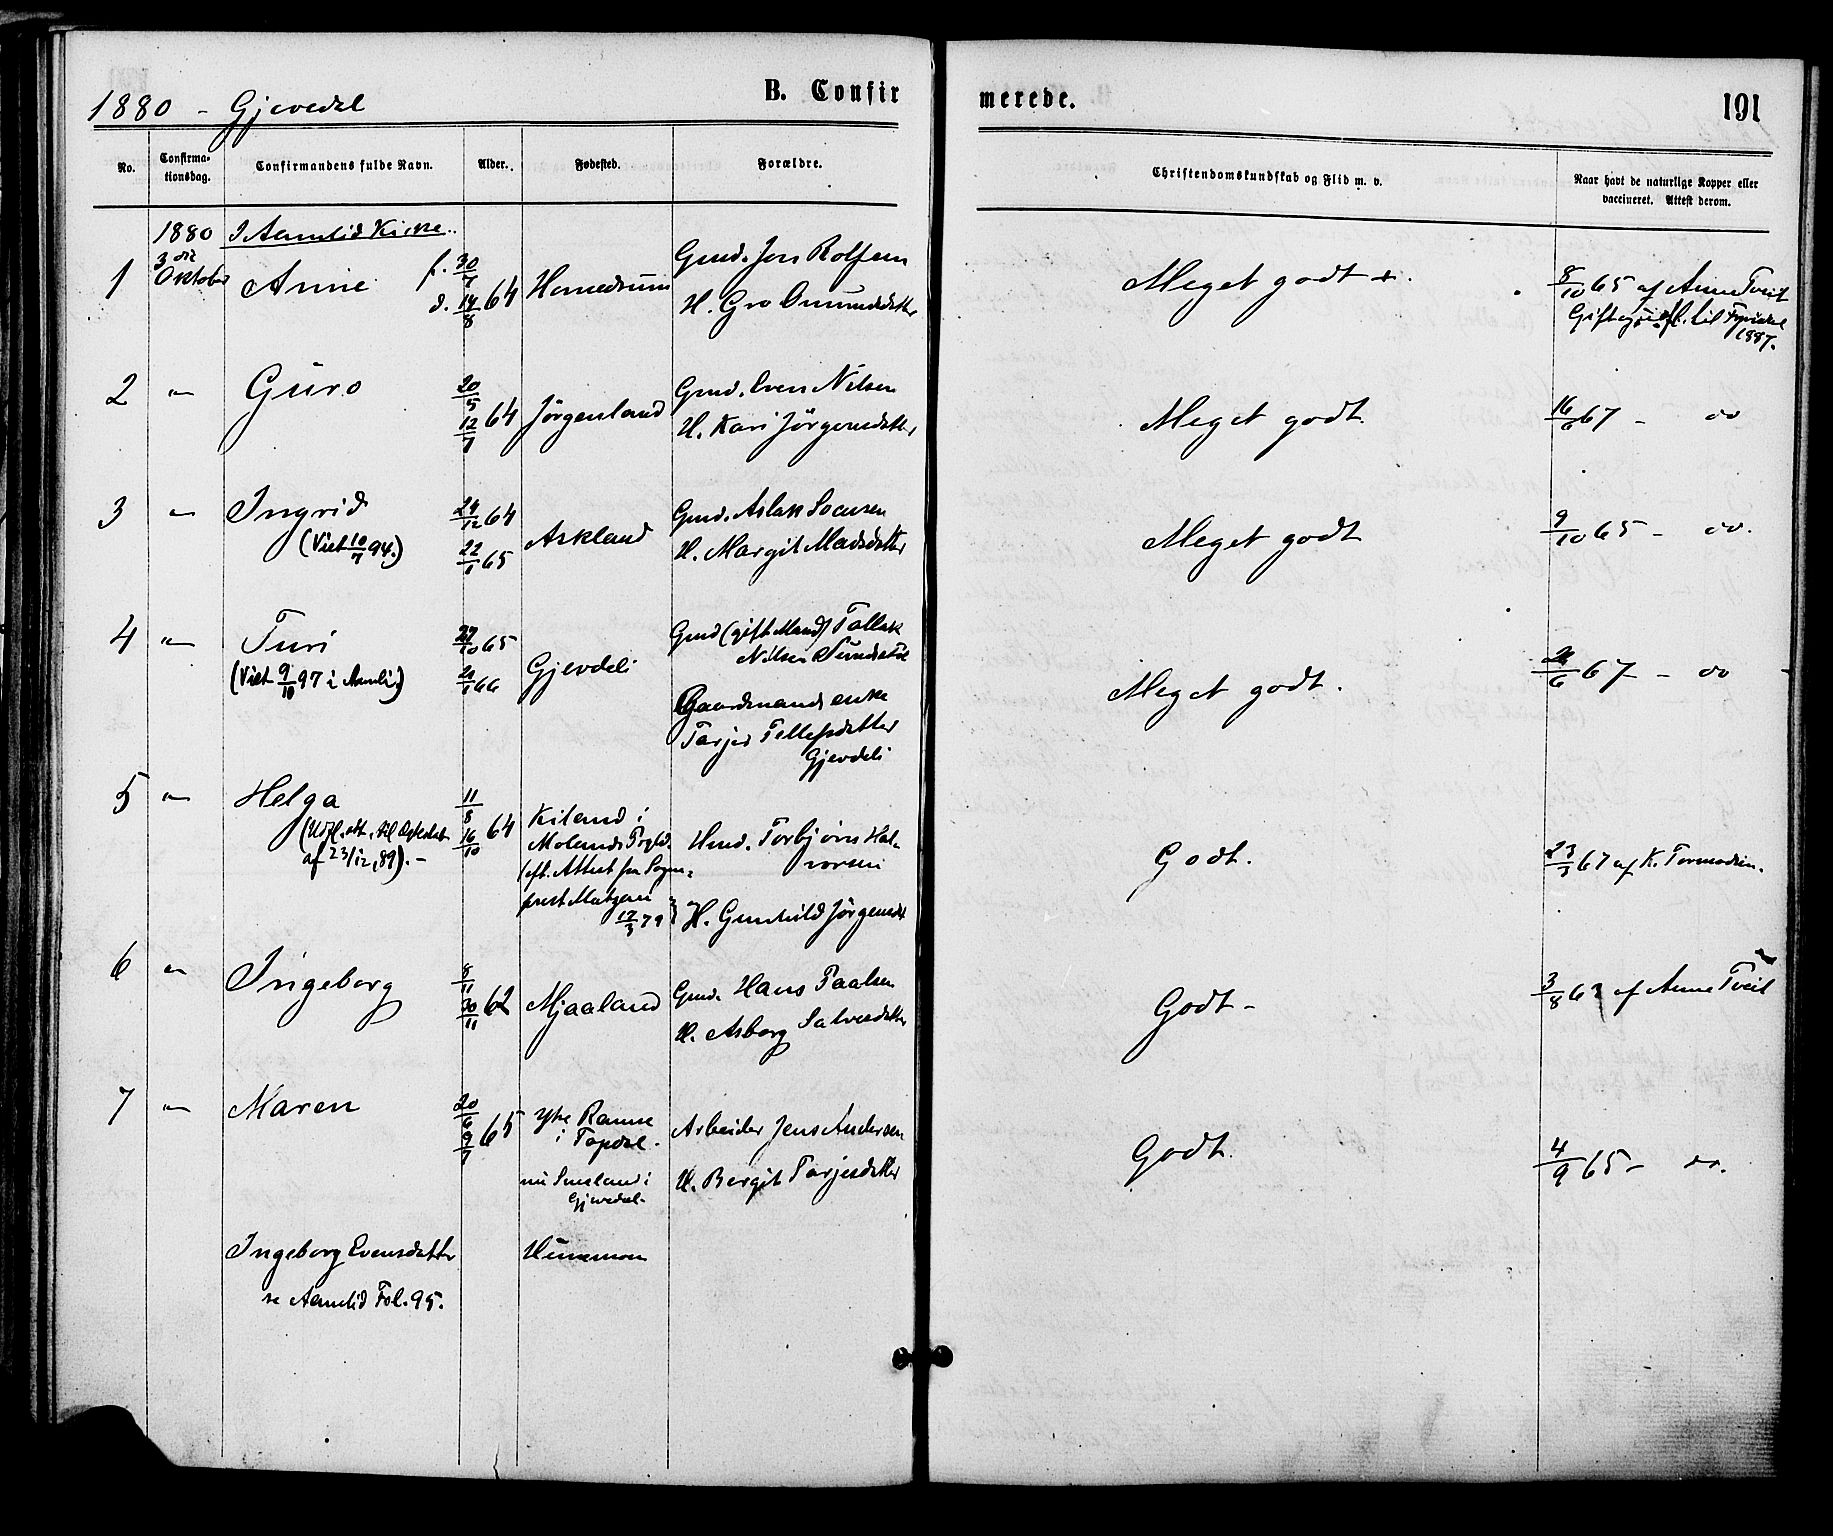 1880 - Gjevedal
B. Confir
merede.
191
No.
Confirma-
tionsdag.
Confirmandens fulde Navn.
Alder.
Fødested.
Forældre.
Christendomskundskab og Flid m. v.
Naar havt de naturlige Kopper eller
vaccineret. Attest derom.
1880 I Aamlid Kirke.
3die
Oktober
1 Anne f. 30/7 d. 14/8 64
Gmd. Jon Rolfsen
H. Gro Omundsdatter
Meget godt +.
8/10 65 af Anne Tveit
1887.
2 " Guro 20/5 12/7 64 Jörgenland
Gmd. Even Nilsen
H. Kari Jörgensdatter
Meget godt.
16/6 67 - do
3 " Ingrid 24/12 64
(Viet 10/7 94.) 22/1 65 Askland
Gmd. Aslak
H. Margit Madsdatter
Meget godt
9/10 65 - do.
4 " Turi 27/10 65
(Viet 9/10 97 i Aamli.) 66 Gjevdeli
Gmd (gift Mand) Tallak
Nilsen
Gaardmands enke
Tarjer Tellefsdatter
Gjevdeli
Meget godt.
67 - do
5 " Helga 11/8 16/10 64
(Udfl. att. til
af 23/12, 89). -
Kiland i
Molands Prgld.
(eft. Attest fra Sogne-
prest
17/3 79)
Hmd. Torbjörn Hal-
vorsen
H. Gunhild Jörgensd
Godt.
23/3 67 af K. Tormodsen.
6 " Ingeborg 8/11 30/11 62 Mjaaland
Gmd. Hans Paalsen
H. Asborg Salvesdatter
Godt -
3/8 63 af Anne Tveit
7 " Maren 20/6 9/7 65
Ytre Ramse
i Topdal.
nu Smeland i
Gjevedal.
Arbeider Jens Andersen
H. Bergit Tarjesdatter
Godt.
4/9 65 - do.
Ingeborg Evensdatter Hunemoen
se Aamlid Fol. 95.